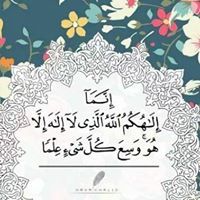 إِنَّمَآ
إِلَـٰهُكُمُ ٱللَّهُ ٱلَّذِى لَآ إِلَـٰهَ إِلَّا
هُوَ ۚ وَسِعَ كُلَّ شَىْءٍ عِلْمًا